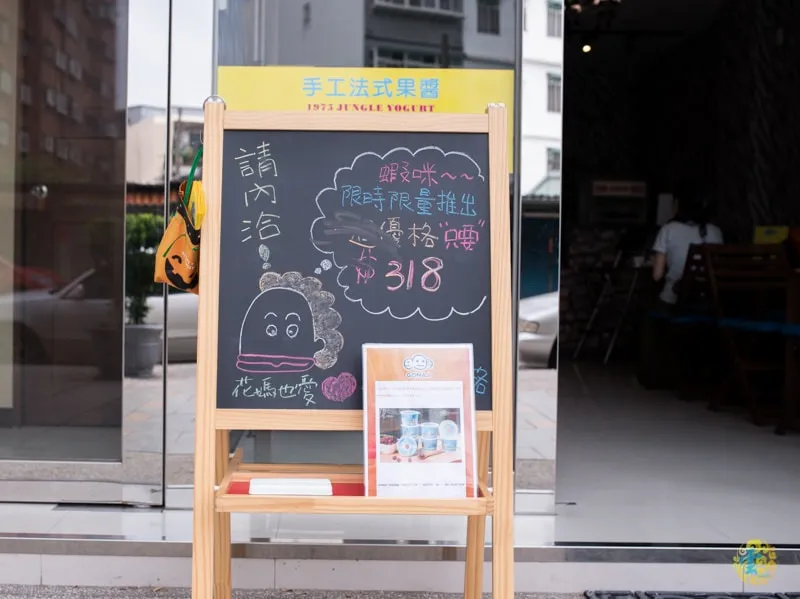 手工法式果醬
1973 JUNGLE YOGURT
請內洽
蝦咪~~
限時限量推出
優格"只要"
318
花媽也愛
格